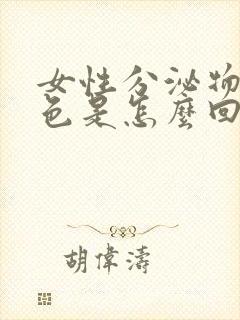 女性分泌物
色是怎麼回
胡偉濤